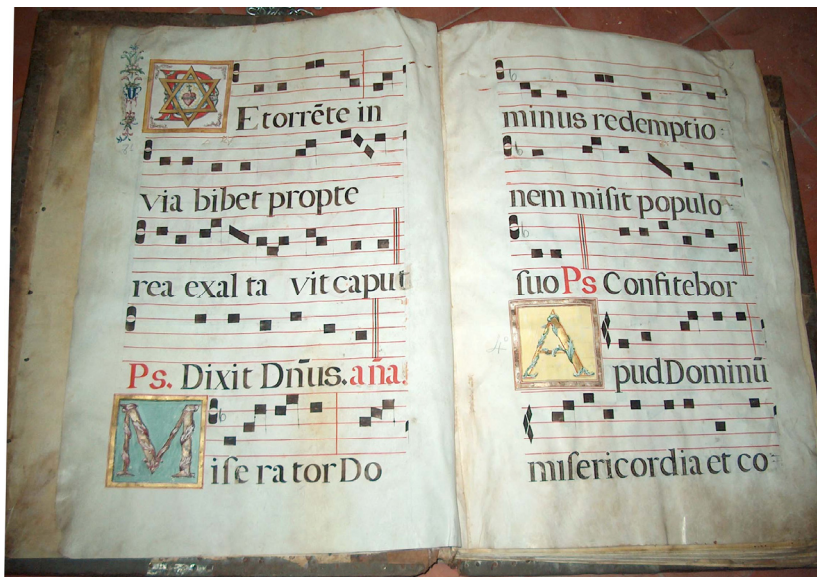 DE torrēte in
via bibet propte
rea exal ta vit caput
Ps. Dixit Dn̄us. an̄a.
Miſe ra tor Do
minus redemptio
nem miſit populo
ſuo Ps Confitebor
4º
Apud Dominū
miſericordia et co